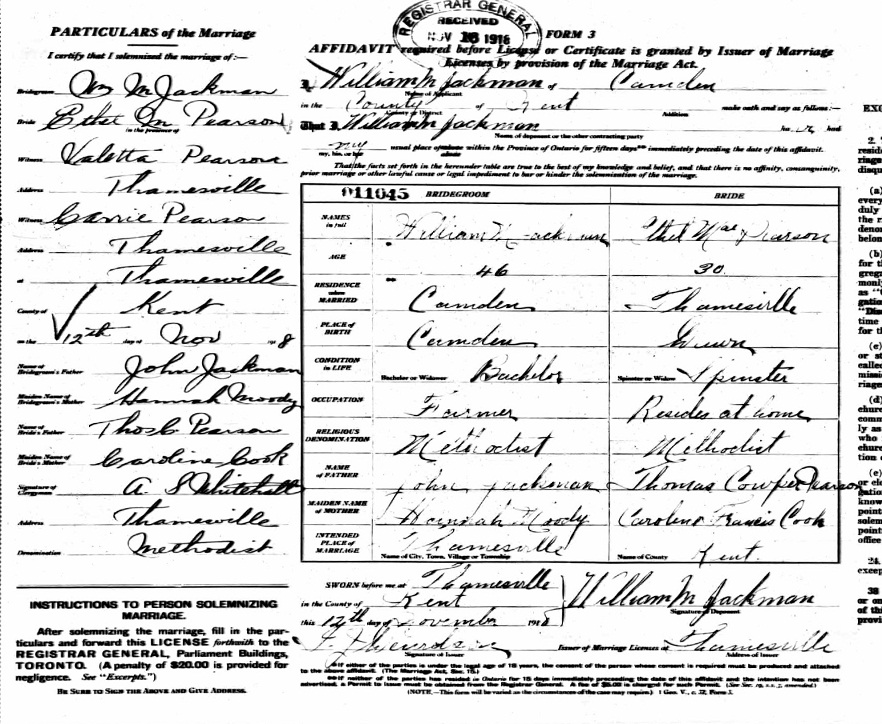 PARTICULARS of the Marriage
I certify that I solemnized the marriage of:—
Bridegroom Wm M Jackman
Bride Ethel M Pearson
in the presence of
Witness Valetta Pearson
Address Thamesville
Witness Carrie Pearson
Address Thamesville
at Thamesville
County of Kent
on the 12th day of Nov 191 8
Name of Bridegroom's Father John Jackman
Maiden Name of Bridegroom's Mother Hannah Moody
Name of Bride's Father Thos C Pearson
Maiden Name of Bride's Mother Caroline Cook
Signature of Clergyman A. S Whitehall
Address Thamesville
Denomination Methodist
INSTRUCTIONS TO PERSON SOLEMNIZING
MARRIAGE.
After solemnizing the marriage, fill in the par-
ticulars and forward this LICENSE forthwith to the
REGISTRAR GENERAL, Parliament Buildings,
TORONTO. (A penalty of $20.00 is provided for
negligence. See "Excerpts.")
BE SURE TO SIGN THE ABOVE AND GIVE ADDRESS.
REGISTRAR GENERAL
RECEIVED
NOV 1918
FORM 3
AFFIDAVIT required before License or Certificate is granted by Issuer of Marriage
Licenses by provision of the Marriage Act.
I, William M Jackman of Camden
Name of Applicant
in the County of Kent make oath and say as follows:—
County or District Addition
That I William M Jackman had
Name of deponent or the other contracting party
my usual place of abode within the Province of Ontario for fifteen days** immediately preceding the date of this affidavit.
my, his, or her
That the facts set forth in the hereunder table are true to the best of my knowledge and belief, and that there is no affinity, consanguinity,
prior marriage or other lawful cause or legal impediment to bar or hinder the solemnization of the marriage.
011045 BRIDEGROOM BRIDE
NAMES in full William M Jackman Ethel Mae Pearson
AGE 46 30
RESIDENCE when MARRIED Camden Thamesville
PLACE of BIRTH Camden
CONDITION in LIFE Bachelor or Widower Bachelor Spinster or Widow Spinster
OCCUPATION Farmer Resides at home
RELIGIOUS DENOMINATION Methodist Methodist
NAME OF FATHER John Jackman Thomas Cowper Pearson
MAIDEN NAME OF MOTHER Hannah Moody Caroline Francis Cook
INTENDED PLACE OF MARRIAGE Thamesville Kent
Name of City, Town, Village or Township Name of County
SWORN before me at Thamesville
in the County of Kent William M Jackman
Signature of Deponent
this 12th day of November 191 8
Issuer of Marriage Licenses at Thamesville
Signature of Issuer Address of Issuer
*If either of the parties is under the legal age of 18 years, the consent of the person whose consent is required must be produced and attached
to the above affidavit. (The Marriage Act, Sec. 15.)
**If neither of the parties has resided in Ontario for 15 days immediately preceding the date of this affidavit and the intention has not been
advertised, a Permit to Issue must be obtained from the Registrar General. A fee of $5.00 is charged for such Permit.
(NOTE.—This form will be varied as the circumstances of the case may require.) 1 Geo. V., c. 32, Form 3.